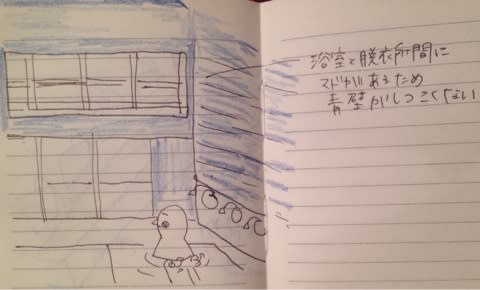 浴室と脱衣所間に
マドがあるため
青壁がしつこくない